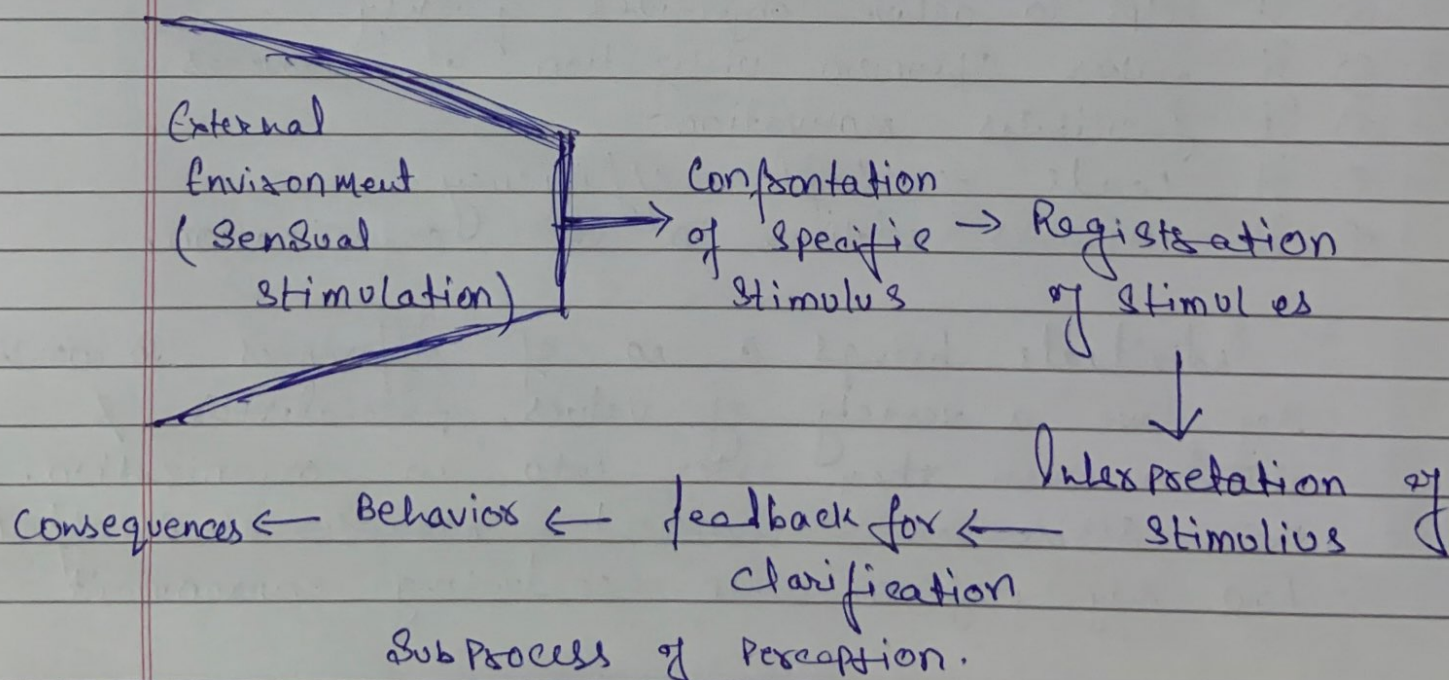 External
Environment
(Sensual
stimulation)
Confrontation
of specific
stimulus
Registration
of stimules
Interpretation of
stimulius
feedback for
clarification
Behavior
Consequences
Subprocess of Perception.